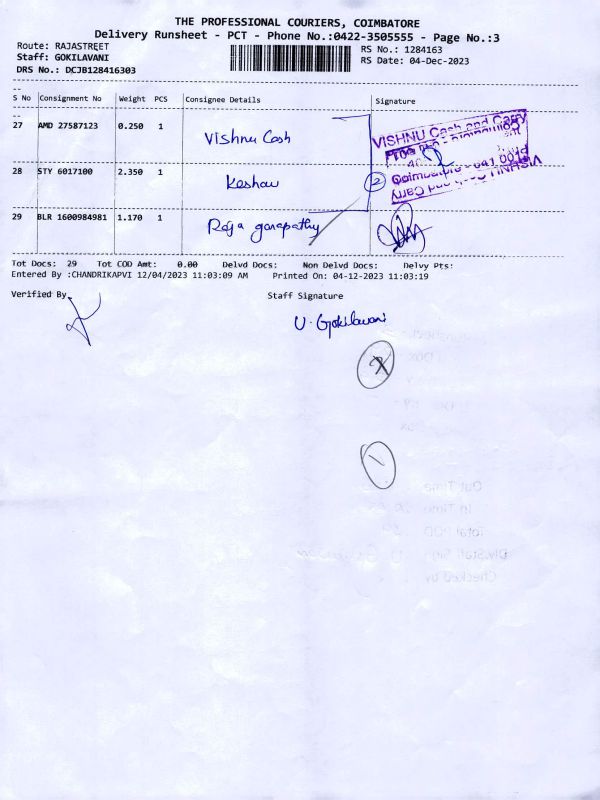 THE PROFESSIONAL COURIERS, COIMBATORE
Delivery Runsheet - PCT - Phone No.:0422-3505555 - Page No.:3
Route: RAJASTREET
RS No.: 1284163
Staff: GOKILAVANI
RS Date: 04-Dec-2023
DRS No.: DCJB128416303
S No Consignment No Weight PCS Consignee Details Signature
27 AMD 27587123 0.250 1 Vishnu Cash
VISHNU Cash and Carry
28 STY 6017100 2.350 1 Keshav
2
VISHNU Cash and Carry
29 BLR 1600984981 1.170 1 Raja ganapathy
Tot Docs: 29 Tot COD Amt: 0.00 Delvd Docs: Non Delvd Docs: Delvy Pts:
Entered By :CHANDRIKAPVI 12/04/2023 11:03:09 AM Printed On: 04-12-2023 11:03:19
Verified By
Staff Signature
U. Gokilavani
1
Out Time
In Time
Total POD
Dlv.Staff Sign
Checked by